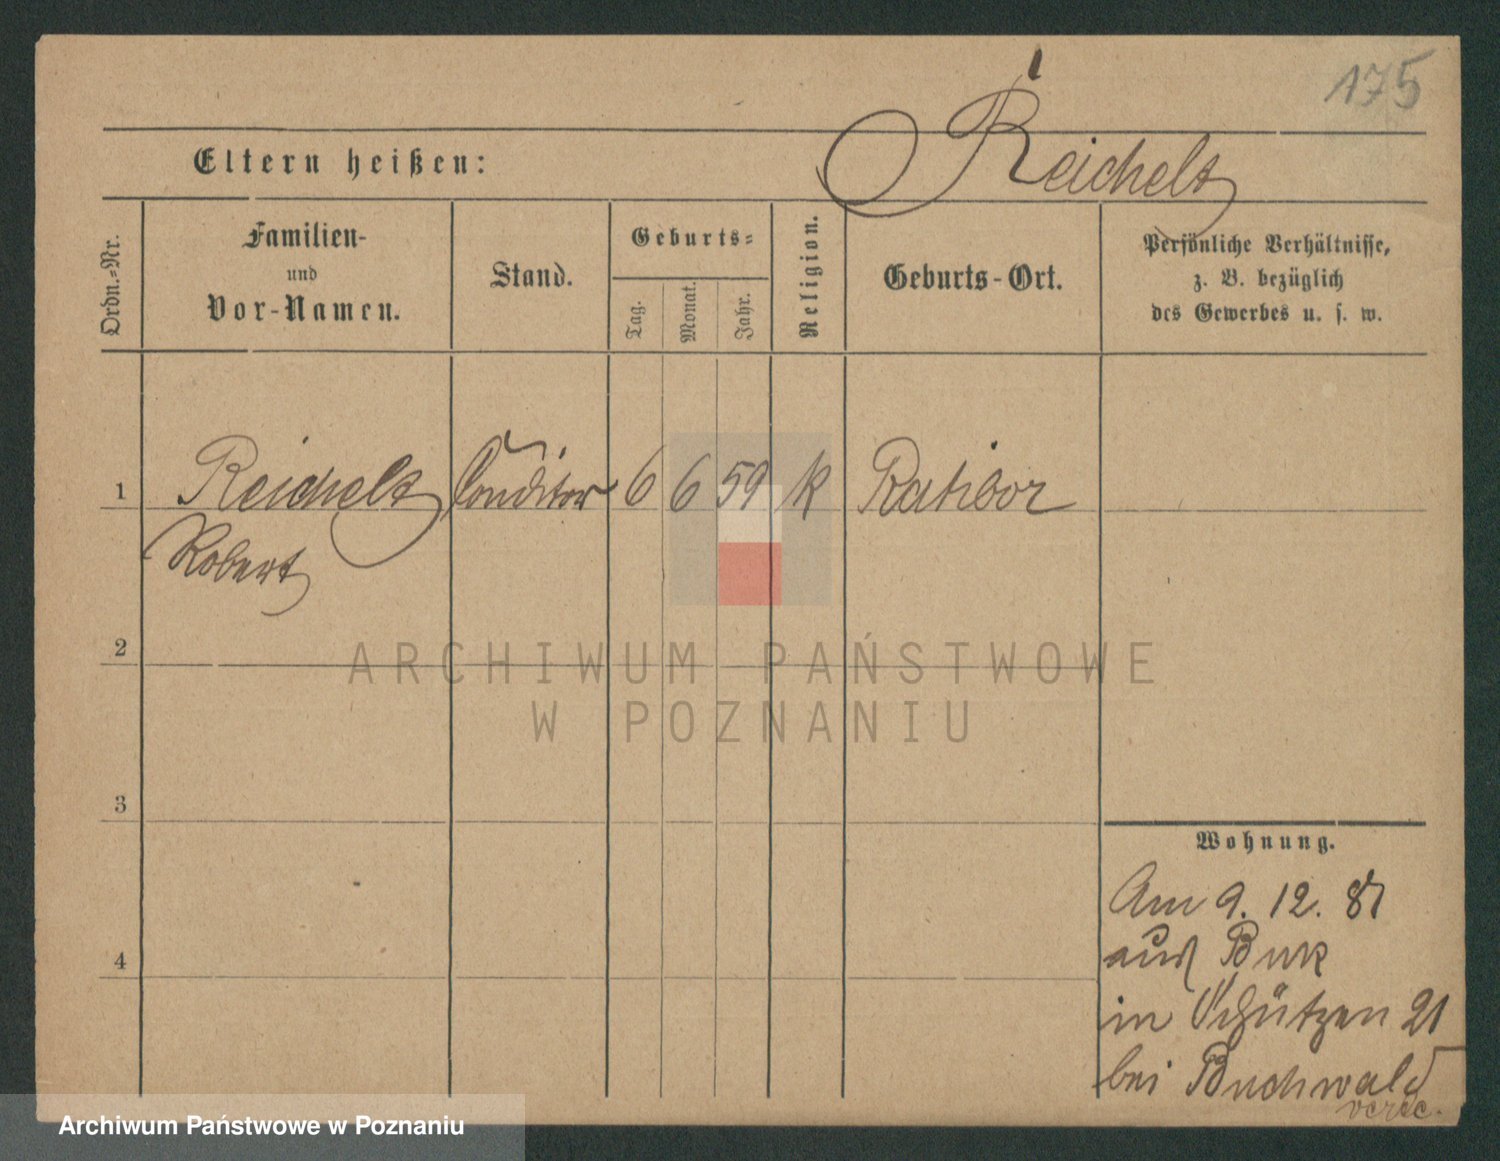 175
Reichelt
Eltern heißen:
Ordn.-Nr.
Familien-
und
Vor-Namen.
Stand.
Geburts-
Tag.
Monat.
Jahr.
Religion.
Geburts-Ort.
Persönliche Verhältnisse,
z. B. bezüglich
des Gewerbes u. s. w.
1 Reichelt Conditor 6 6 59 k Ratibor
Robert
2
ARCHIWUM PAŃSTWOWE
W POZNANIU
3
Wohnung.
Am 9. 12. 87
aus Buk
4
in Schützen 21
bei Buchwald
Archiwum Państwowe w Poznaniu